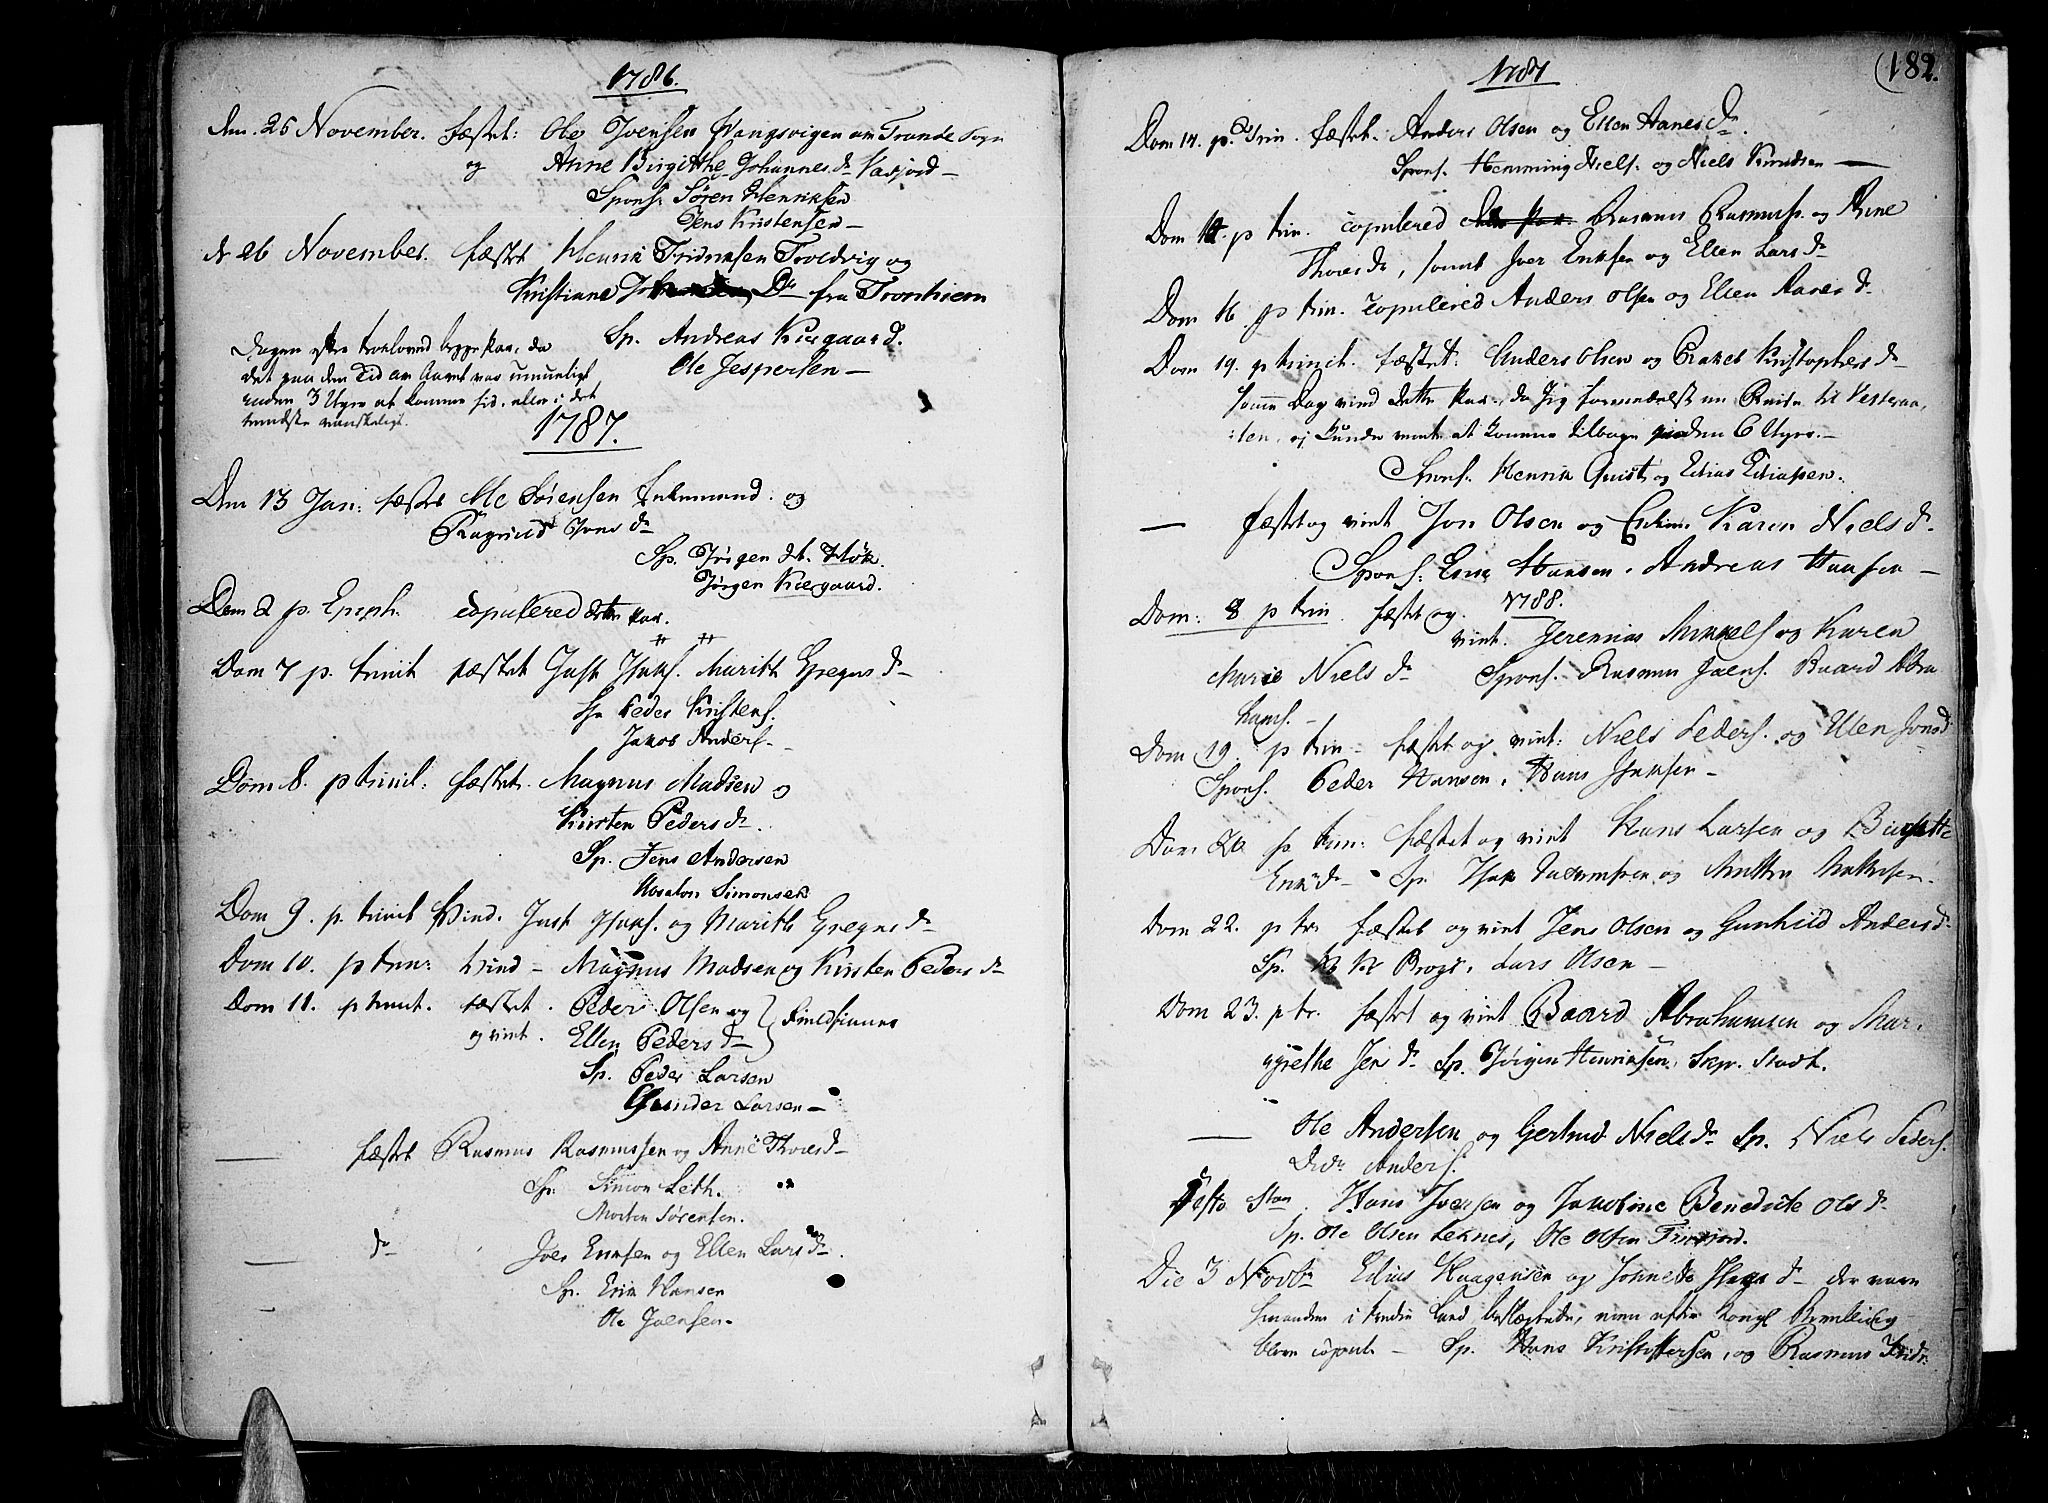 1786.
Den. 25 November. fæstet: Ole Ivensen Vangsvigen am Trande Sogn
og Anne Birgithe Johannes dr Kaxjord —
Spons: Søren Henriksen
Jens Kristensen —
d 26 November. fæstet Henrik Fridriksen Troldvig og
Kristiane Dr fra Tronhiem
Sp. Andreas Kiergaard.
Ole Jespersen —
Dagen efter troloved begge par, da
det paa den Tid av Aaret var umueligt
inden 3 Uger at komme hid, eller i det
mindste vanskeligt.
1787.
Den 13 Jan: fæstet Ole Sørensen Enkemand og
Ragnild Jons dr
Sp. Jørgen H. Høk.
Jørgen Kiergaard.
Dom 2 p. Epiph. copulered dette par.
Dom 7 p. trinit fæstet Just Isaks. Marith Gregers dr —
Sp Peder Kristens.
Jakob Anders. -
Dom 8. p trinit. fæstet. Magnus Madsen og
Kirsten Peders dr.
Sp. Jens Andersen
Absalon Simonsen
Dom 9. p. trinit Viud. Just Isaks. og Marith Gregers dr
Dom 10. p trin: viud — Magnus Madsen og Kirsten Peders dr
Dom 11. p trinit. fæstet. Peder Olsen og
og viet. Ellen Peders dr Fieldfinner
Sp. Peder Larsen
Gunder Larsen —
— fæstet Rasmus Rasmussen og Anne Thores dr —
Sp. Simon Leth.
Morten Sørensen.
— do Iver Eriksen og Ellen Lars dr.
Sp. Erik Hansen
Ole Joensen.
1787
(182.
Dom 14. p. Trin. fæstet. Anders Olsen og Ellen Aanes dr.
Spons. Hemming Niels. og Niels Knudsen —
Dom p trin. copulered Rasmus Rasmuss. og Anne
Thores dr, samt Iver Eriksen og Ellen Lars dr
Dom 16 p trin. copulered Anders Olsen og Ellen Aanes dr.
Dom 19. p trinit. fæstet. Anders Olsen og Kristophers dr —
samme Dag viud dette par, da Jeg foretog en Reise til Vesteraa,
:len, ej kunde vente at komme tilbage inden 6 Uger. —
Spons. Henrik Quist og Elias Eliassen.
— fæstet og viet Jon Olsen og Enken Karen Niels dr.
Spons: Erik Hansen. Andreas Hansen —
1788.
Dom: 8 p trin. fæstet og
viet. Jeremias Mikkels og Karen
Marie Niels dr Spons. Rasmus Joens. Baard Abra
hams. —
Dom 19. p trin — fæstet og viet: Niels Peders. og Ellen Jonsd
Spons. Peder Hansen. Hans Isaksen —
Dom p trin: fæstet og viet Hans Larsen og Birgitte
Eriks dr — Sp. Isak og
Dom 22. p tr fæstet og viet Jens Olsen og Gunhild Anders dr
Sp. Lars Olsen —
Dom 23. p tr. fæstet og viet Baard Abrahamsen og Mar-
grethe Jens dr Sp. Jørgen Henriksen. Skpr. Stadt.
— Ole Andersen og Gertrud Niels dr Sp. Niels Peders.
Anders.
Festo Stan. Hans Iversen og Jakobine Benedicte Ols dr
Sp. Ole Olsen Leknes, Ole Olsen Finfiord.
Die 3 Novbr Elias Haagensen og Johnette Isaks dr — der vare
hinanden i tredie Leed beslægtede, men efter Kongl Bevilling
bleve copul. — Sp. Hans Kristoffersen, og Rasmus Fridr.